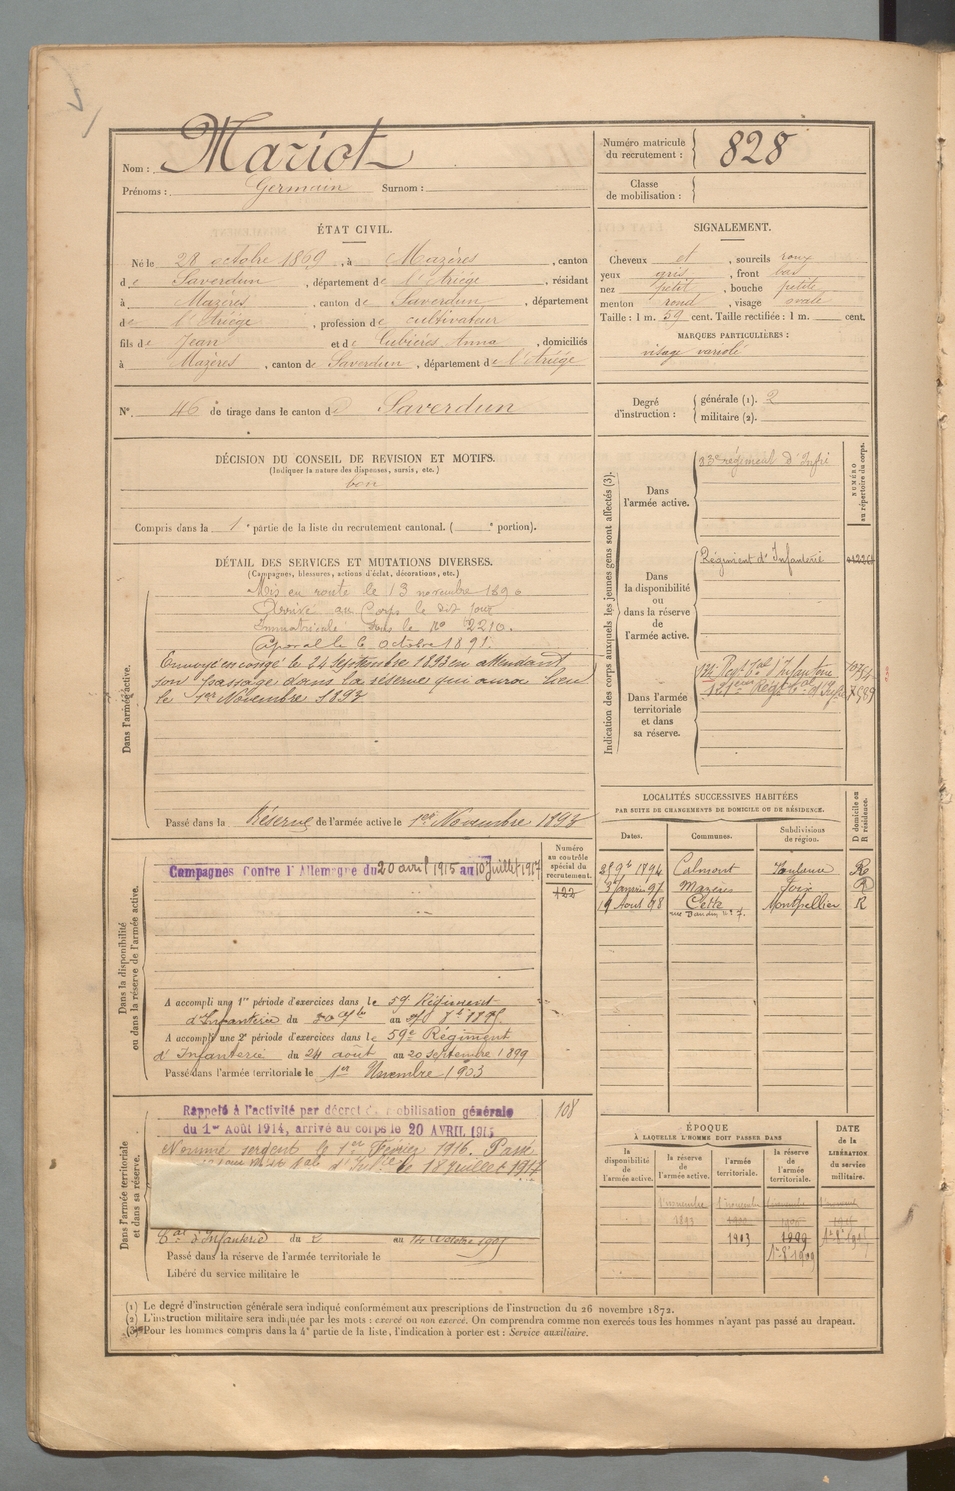 Nom : Mariot
Prénoms : Germain Surnom :
Numéro matricule du recrutement : 828
Classe de mobilisation :
ÉTAT CIVIL.
Né le 28 octobre 1869, à Mazères, canton
de Saverdun, département de l'Ariége, résidant
à Mazères, canton de Saverdun, département
de l'Ariége, profession de cultivateur
fils de Jean et de Cubières Anna, domiciliés
à Mazères, canton de Saverdun, département de l'Ariége
N°. 46 de tirage dans le canton de Saverdun
SIGNALEMENT.
Cheveux et, sourcils roux
yeux gris, front bas
nez petit, bouche petite
menton rond, visage ovale
Taille : 1 m. 59 cent. Taille rectifiée : 1 m. cent.
MARQUES PARTICULIÈRES :
visage variolé
Degré d'instruction : générale (1). 2
militaire (2).
DÉCISION DU CONSEIL DE REVISION ET MOTIFS.
(Indiquer la nature des dispenses, sursis, etc.)
bon
Compris dans la 1e partie de la liste du recrutement cantonal. ( e portion).
DÉTAIL DES SERVICES ET MUTATIONS DIVERSES.
(Campagnes, blessures, actions d'éclat, décorations, etc.)
Dans l'armée active.
Mis en route le 13 novembre 1890
Arrivé au Corps le dit jour
Immatriculé sous le No 2210.
Caporal le 6 octobre 1891.
Envoyé en congé le 24 Septembre 1893 en attendant
son passage dans la réserve qui aura lieu
le 1er Novembre 1893
Passé dans la Réserve de l'armée active le 1er Novembre 1893
Indication des corps auxquels les jeunes gens sont affectés (3).
NUMÉRO au répertoire du corps.
Dans l'armée active.
83e régiment d'Infie
Dans la disponibilité ou dans la réserve de l'armée active.
Régiment d'Infanterie
Dans l'armée territoriale et dans sa réserve.
Regt d'Infanterie
LOCALITÉS SUCCESSIVES HABITÉES
PAR SUITE DE CHANGEMENTS DE DOMICILE OU DE RÉSIDENCE.
Dates. Communes. Subdivisions de région. D domicile ou R résidence.
1894 Calmont Toulouse R
3 Janvier 97 Mazères Foix R
19 Aout 98 Cette Montpellier R
Dans la disponibilité ou dans la réserve de l'armée active.
Numéro au contrôle spécial du recrutement.
122
Campagnes Contre l'Allemagne du 20 avril 1915 au 10 Juillet 1917
A accompli une 1re période d'exercices dans le 59 Régiment
d'Infanterie du au
A accompli une 2e période d'exercices dans le 59e Régiment
d'Infanterie du 24 août au 20 septembre 1899
Passé dans l'armée territoriale le 1er Novembre 1903
Dans l'armée territoriale et dans sa réserve.
108
Rappelé à l'activité par décret de mobilisation générale
du 1er Août 1914, arrivé au corps le 20 AVRIL 1915
Nommé sergent le 1er Février 1916. Passé
le 18 juillet 1917
d'Infanterie du 2 au 14 Octobre 1905
Passé dans la réserve de l'armée territoriale le
Libéré du service militaire le
ÉPOQUE
À LAQUELLE L'HOMME DOIT PASSER DANS
la disponibilité de l'armée active. la réserve de l'armée active. l'armée territoriale. la réserve de l'armée territoriale. DATE de la LIBÉRATION du service militaire.
1 novembre 1893
1903
1909
(1) Le degré d'instruction générale sera indiqué conformément aux prescriptions de l'instruction du 26 novembre 1872.
(2) L'instruction militaire sera indiquée par les mots : exercé ou non exercé. On comprendra comme non exercés tous les hommes n'ayant pas passé au drapeau.
(3) Pour les hommes compris dans la 4e partie de la liste, l'indication à porter est : Service auxiliaire.